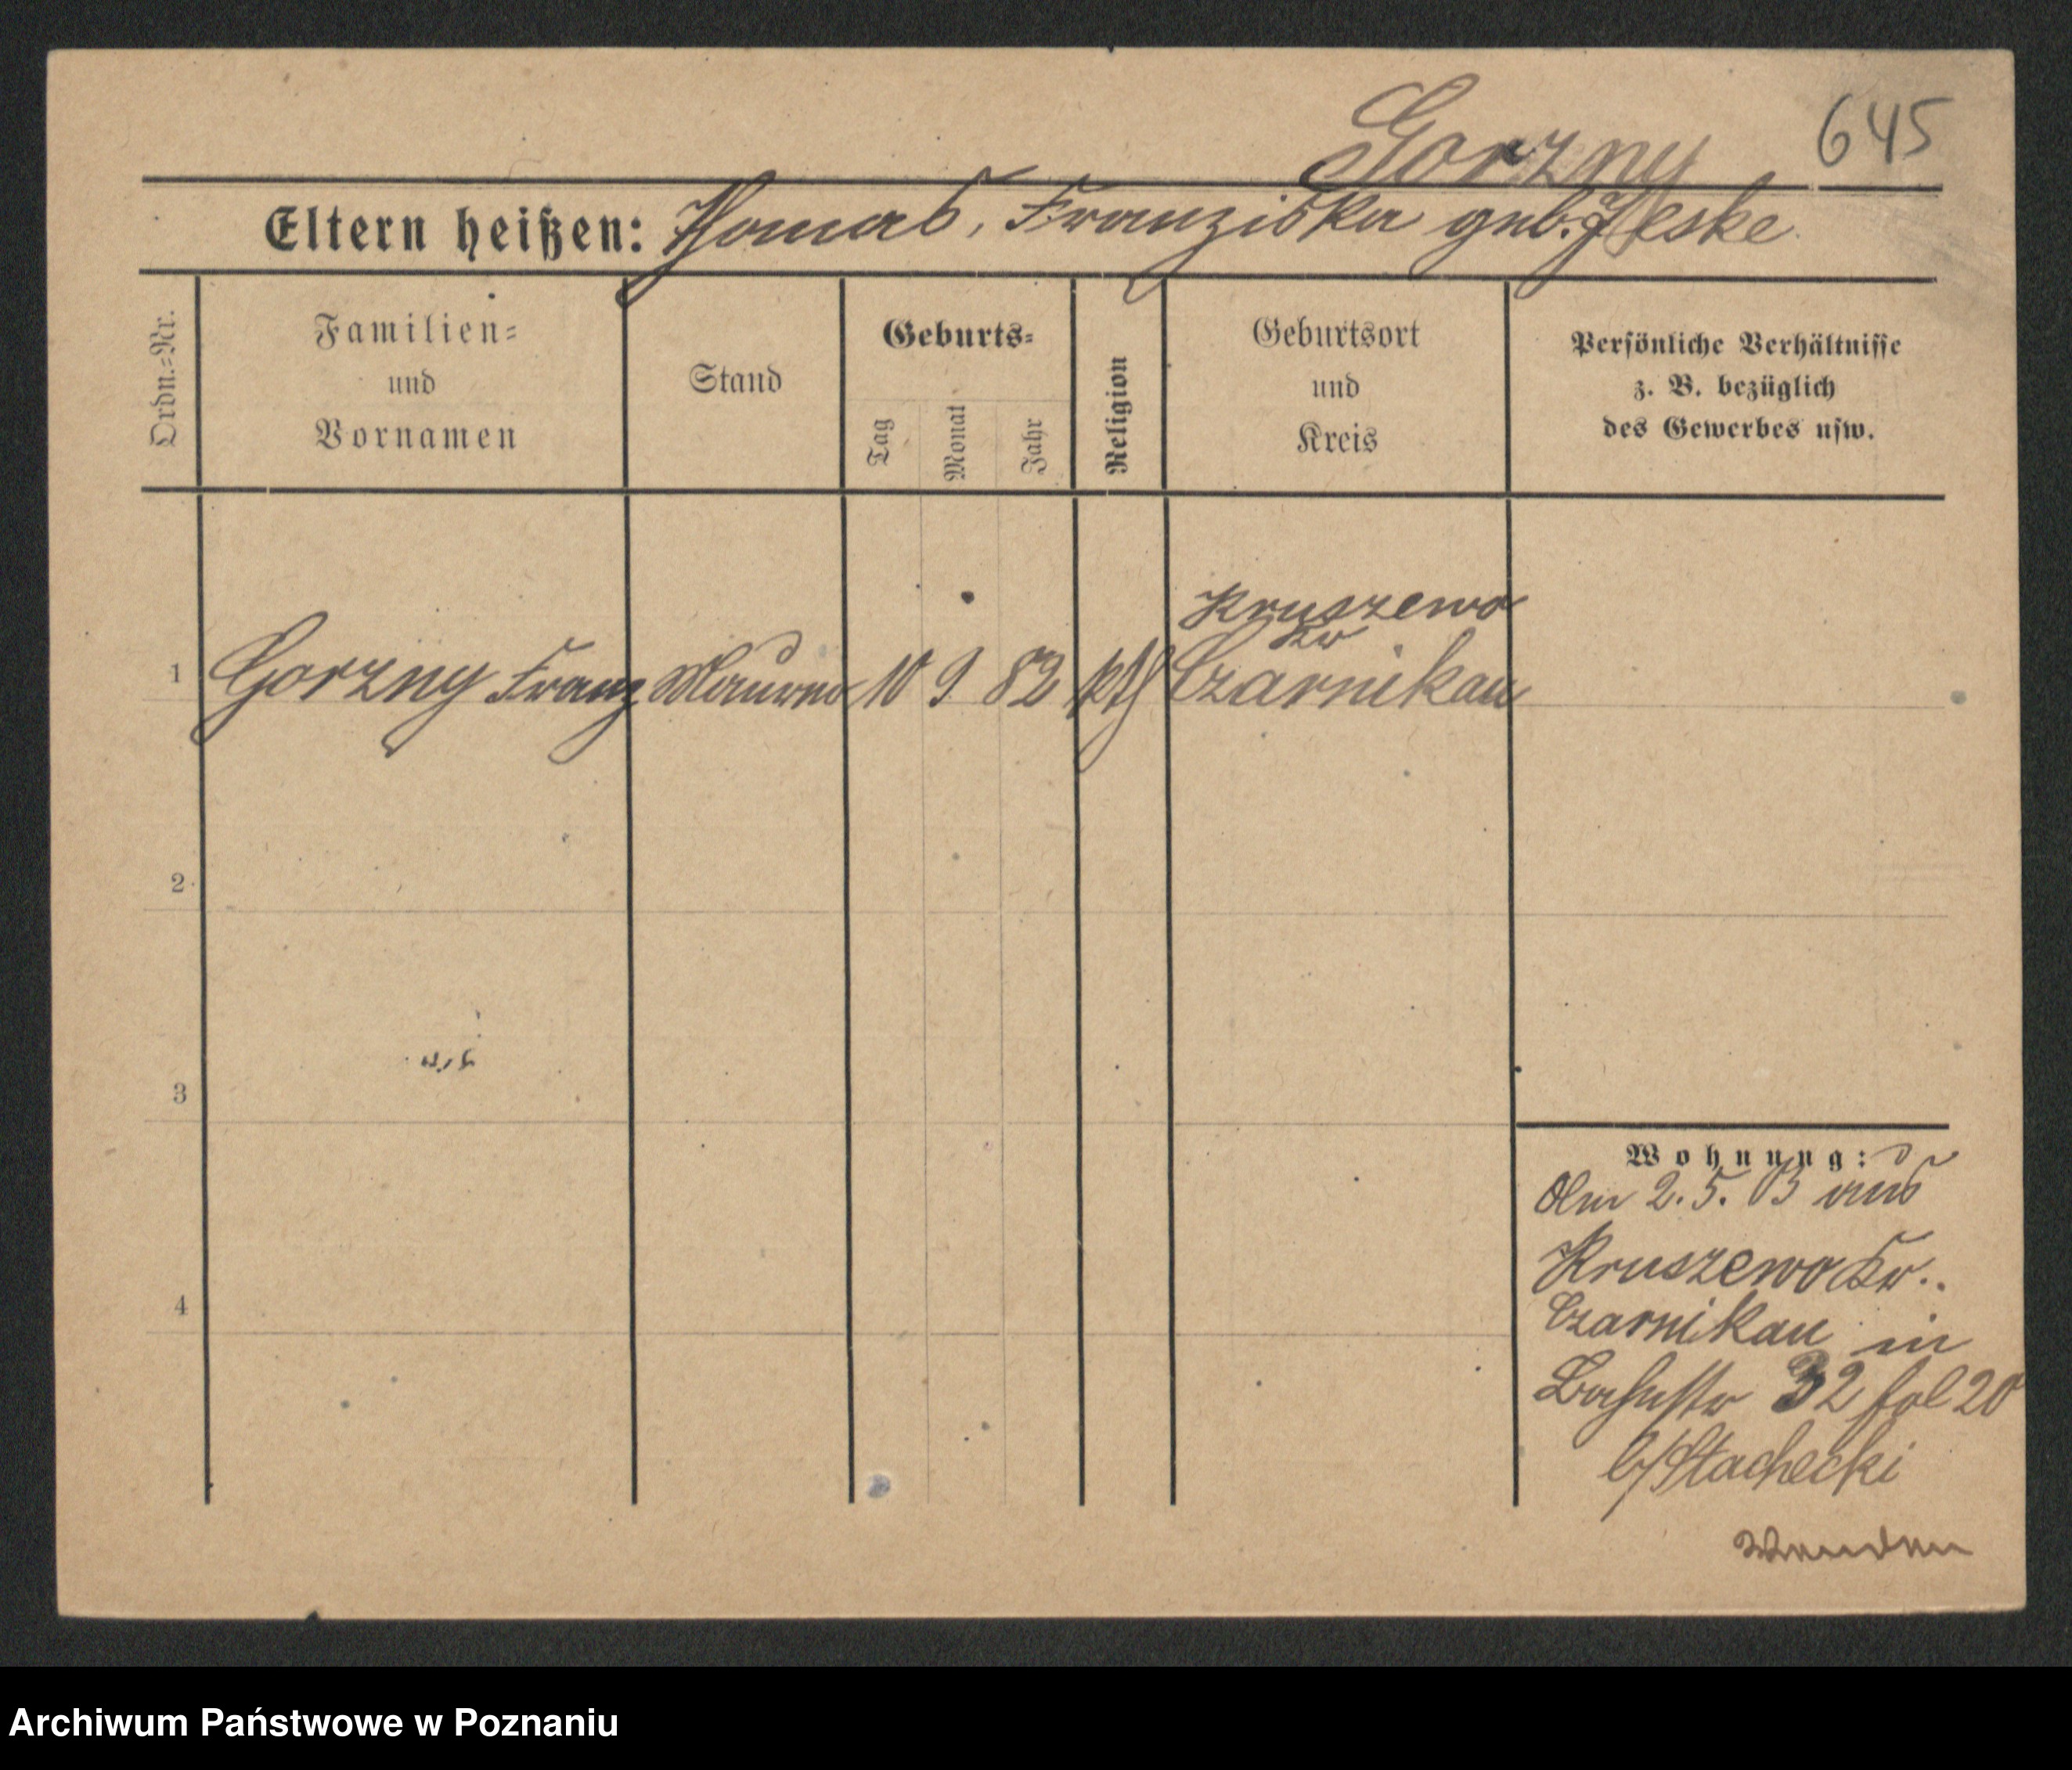 Gorzny 645
Eltern heißen: Thomas, Franziska geb. Jeske
Ordn.=Nr.
Familien=
und
Vornamen
Stand
Geburts=
Tag
Monat
Jahr
Religion
Geburtsort
und
Kreis
Persönliche Verhältnisse
z. B. bezüglich
des Gewerbes usw.
Kruszewo
Kr
1 Gorzny Franz Maurer 10 9 82 kth Czarnikau
2
3
4
Wohnung:
Am 2. 5. 03 aus
Kruszewo Kr.
Czarnikau in
32 fol 20
b/Stachecki
Wenden
Archiwum Państwowe w Poznaniu